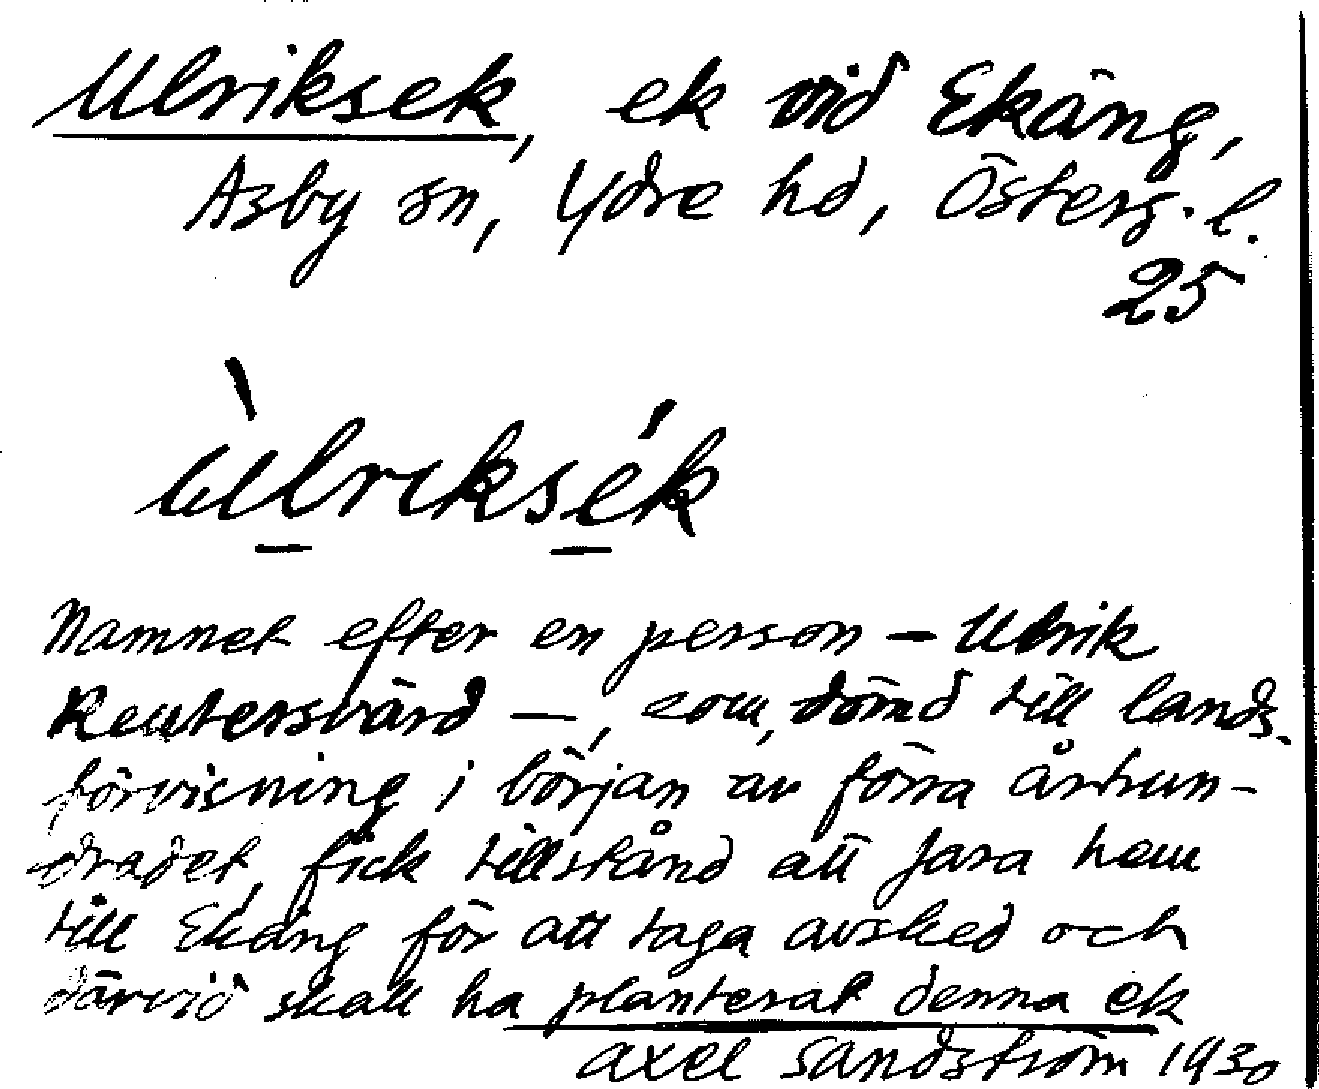 Ulriksek, ek vid Ekäng,
Asby sn, Ydre hd, Österg. l.
25
Ùlriksék
Namnet efter en person – Ulrik
Reutersvärd –, som, dömd till lands-
förvisning i början av förra århun-
dradet, fick tillstånd att fara hem
till Ekäng för att taga avsked och
därvid skall ha planterat denna ek
Axel Sandström 1930